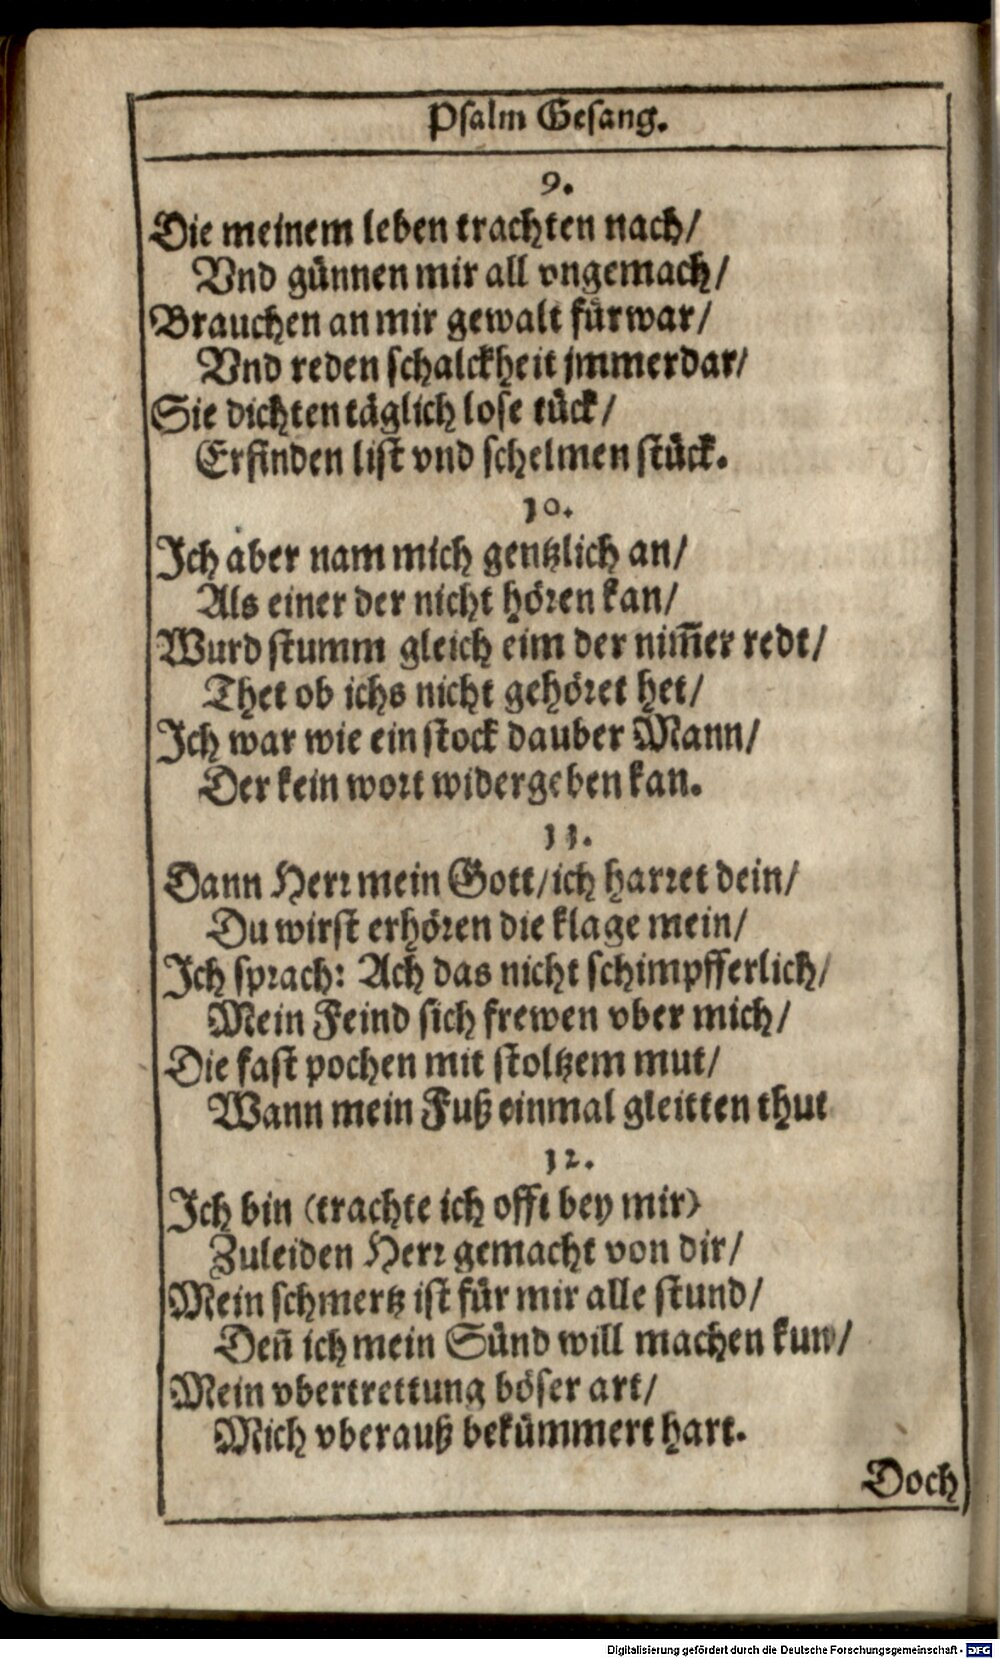 Psalm Gesang.
9.
Die meinem leben trachten nach/
Vnd günnen mir all vngemach/
Brauchen an mir gewalt fürwar/
Vnd reden schalckheit jmmerdar/
Sie dichten täglich lose tück/
Erfinden list vnd schelmen stück.
10.
Ich aber nam mich gentzlich an/
Als einer der nicht hören kan/
Wurd stumm gleich eim der nim̃er redt/
Thet ob ichs nicht gehöret het/
Ich war wie ein stock dauber Mann/
Der kein wort widergeben kan.
11.
Dann Herr mein Gott/ich harret dein/
Du wirst erhören die klage mein/
Ich sprach: Ach das nicht schimpfferlich/
Mein Feind sich frewen vber mich/
Die fast pochen mit stoltzem mut/
Wann mein Fuß einmal gleitten thut
12.
Ich bin (trachte ich offt bey mir)
Zuleiden Herr gemacht von dir/
Mein schmertz ist für mir alle stund/
Deñ ich mein Sünd will machen kun/
Mein vbertrettung böser art/
Mich vberauß bekümmert hart.
Doch
Digitalisierung gefördert durch die Deutsche Forschungsgemeinschaft - DFG